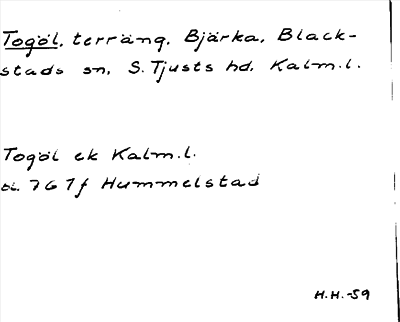 Togöl, terräng, Bjärka, Black-
stads sn, S. Tjusts hd. Kalm.l.
Togöl ek Kalm.l.
bl. 7G 7f Hummelstad
H.H.-59